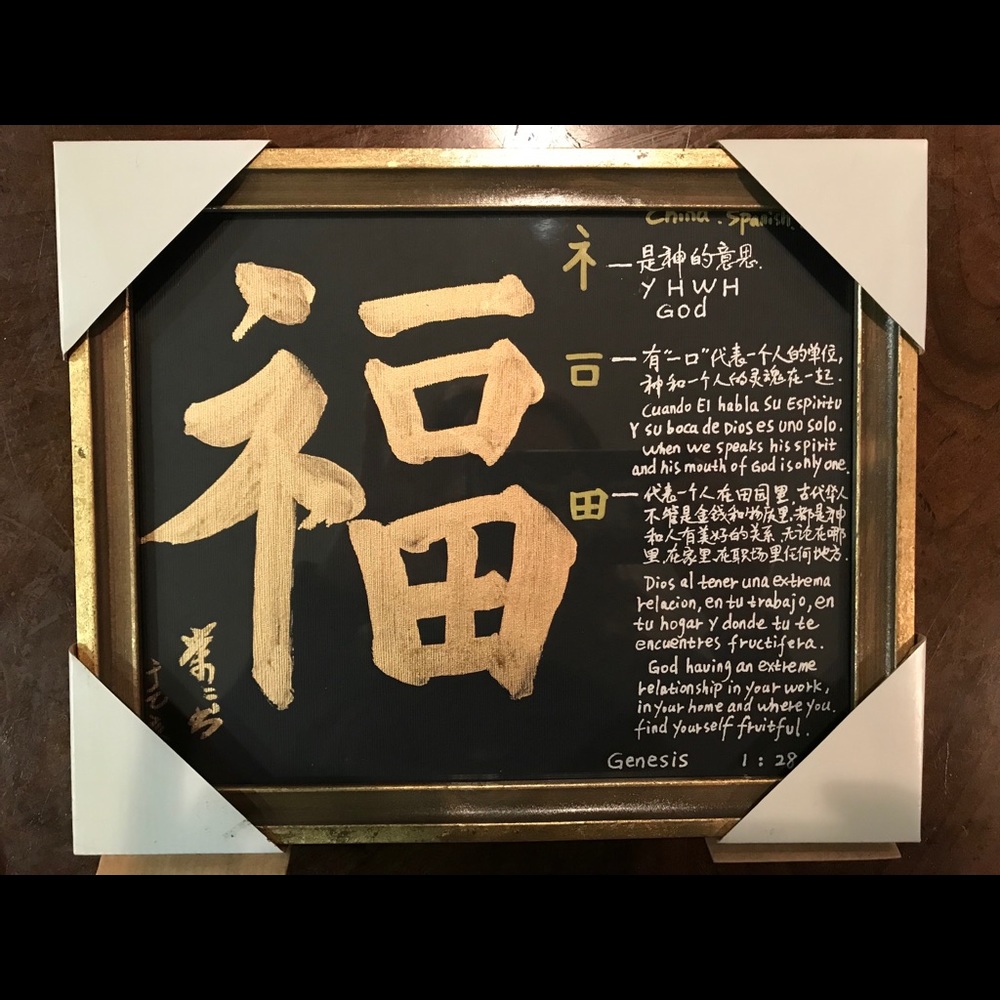 福
China. Spanish.
礻 — 是神的意思.
YHWH
God
一口 — 有"一口"代表一个人的单位,
神和一个人的灵魂在一起.
Cuando El habla Su Espiritu
Y su boca de Dios es uno solo.
When we speaks his spirit
and his mouth of God is only one.
田 — 代表一个人在田园里,古代华人
不管是金钱和物质里,都是神
和人有美好的关系,无论在哪
里,在家里,在职场里任何地方.
Dios al tener una extrema
relacion, en tu trabajo, en
tu hogar y donde tu te
encuentres fructifera.
God having an extreme
relationship in your work,
in your home and where you.
find yourself fruitful.
Genesis 1:28